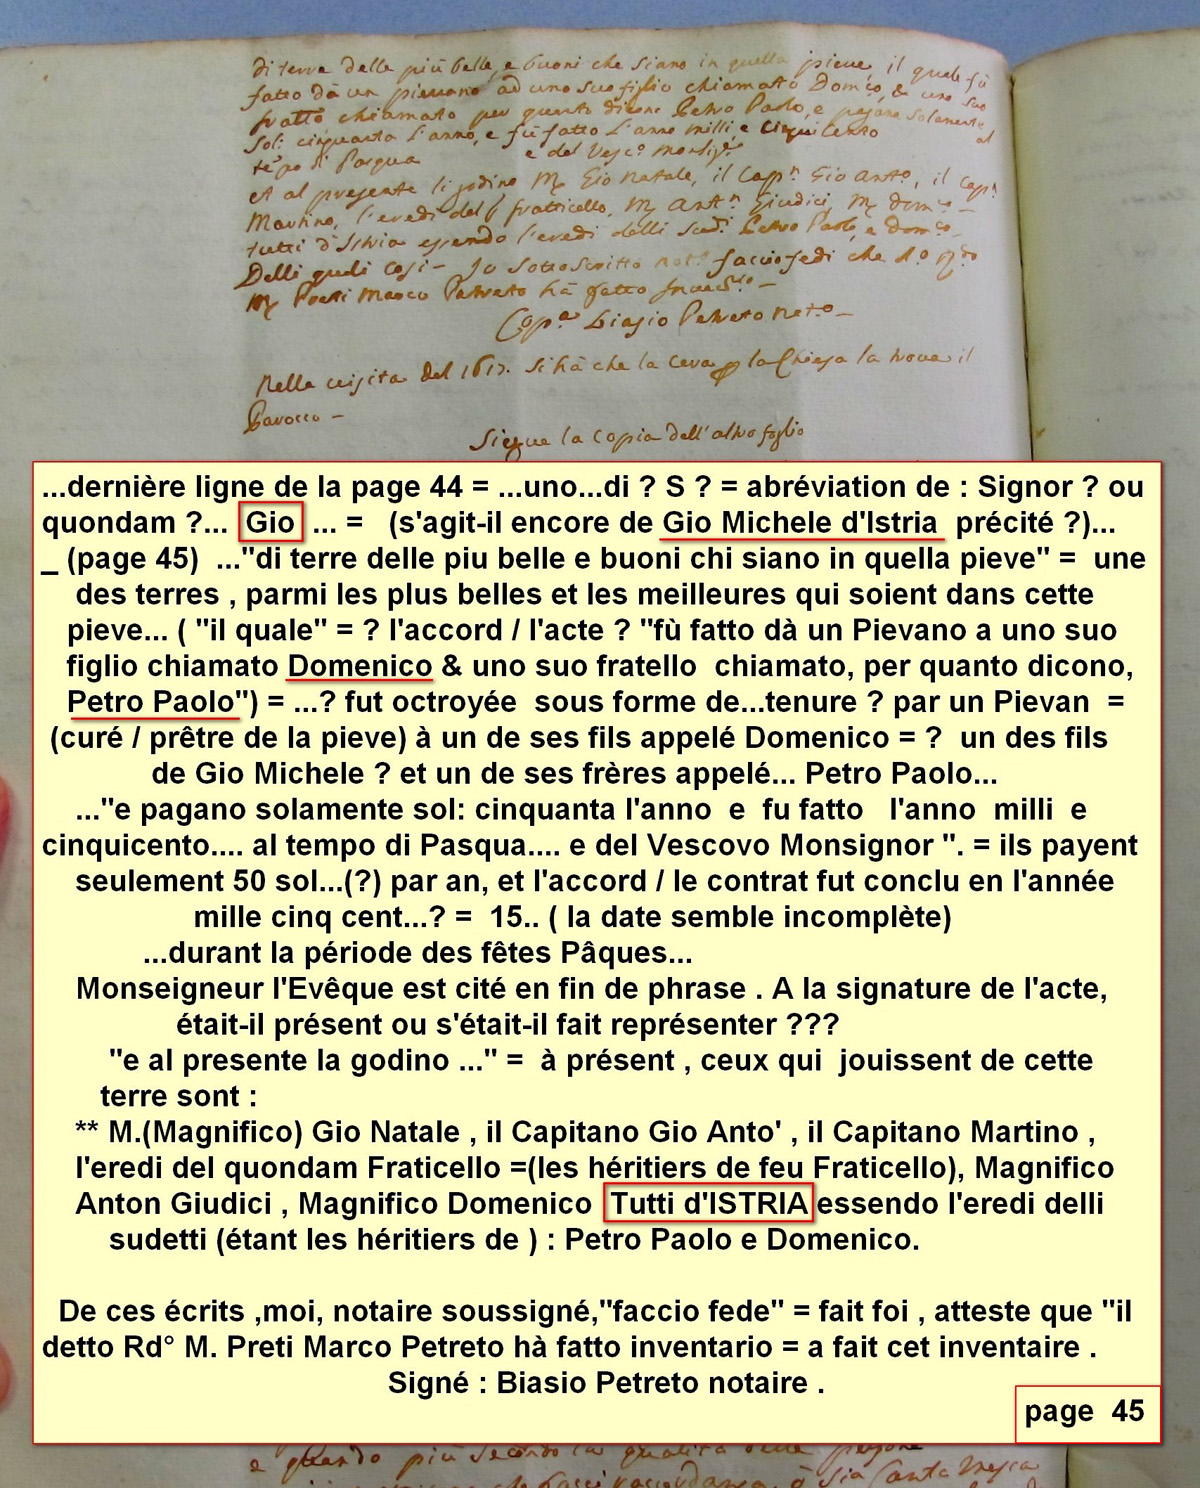 di terre delle più belle, e buoni che siano in quella pieve, il quale fù
fatto dà un pievano ad uno suo figlio chiamato Dom:co, & uno suo
fratto chiamato per quanto dicono Petro Paolo, e pagano solamente
sol: cinquanta l'anno, e fù fatto l'anno milli, e cinquicento al
tẽpo di Pasqua e del Vesc:o Monsig:r
et al presente li godino M. Gio Natale, il Cap:n Gio Ant:o, il Cap:n
Martino, l'eredi del q fratticello, M. Ant:n Giudici, M. Dom:co
tutti d'Istria essendo l'eredi delli sud:i Petro Paolo, e Dom:co
Delli quali cosi Io sottoscritto not:o faccio fedi che
M. Preti Marco Petreto hà fatto
Cop:a Biasio Petreto not:o
Nella visita del 1617. si hà che la cera p la Chiesa la trova il
Parocco
Siegue la copia dell'altro foglio
...dernière ligne de la page 44 = ...uno...di ? S ? = abréviation de : Signor ? ou
quondam ?... Gio ... = (s'agit-il encore de Gio Michele d'Istria précité ?)...
_ (page 45) ..."di terre delle piu belle e buoni chi siano in quella pieve" = une
des terres , parmi les plus belles et les meilleures qui soient dans cette
pieve... ( "il quale" = ? l'accord / l'acte ? "fù fatto dà un Pievano a uno suo
figlio chiamato Domenico & uno suo fratello chiamato, per quanto dicono,
Petro Paolo") = ...? fut octroyée sous forme de...tenure ? par un Pievan =
(curé / prêtre de la pieve) à un de ses fils appelé Domenico = ? un des fils
de Gio Michele ? et un de ses frères appelé... Petro Paolo...
..."e pagano solamente sol: cinquanta l'anno e fu fatto l'anno milli e
cinquicento.... al tempo di Pasqua.... e del Vescovo Monsignor ". = ils payent
seulement 50 sol...(?) par an, et l'accord / le contrat fut conclu en l'année
mille cinq cent...? = 15.. ( la date semble incomplète)
...durant la période des fêtes Pâques...
Monseigneur l'Evêque est cité en fin de phrase . A la signature de l'acte,
était-il présent ou s'était-il fait représenter ???
"e al presente la godino ..." = à présent , ceux qui jouissent de cette
terre sont :
** M.(Magnifico) Gio Natale , il Capitano Gio Anto' , il Capitano Martino ,
l'eredi del quondam Fraticello =(les héritiers de feu Fraticello), Magnifico
Anton Giudici , Magnifico Domenico Tutti d'ISTRIA essendo l'eredi delli
sudetti (étant les héritiers de ) : Petro Paolo e Domenico.
De ces écrits ,moi, notaire soussigné,"faccio fede" = fait foi , atteste que "il
detto Rd° M. Preti Marco Petreto hà fatto inventario = a fait cet inventaire .
Signé : Biasio Petreto notaire .
page 45
e quando più secondo la qualità delle persone